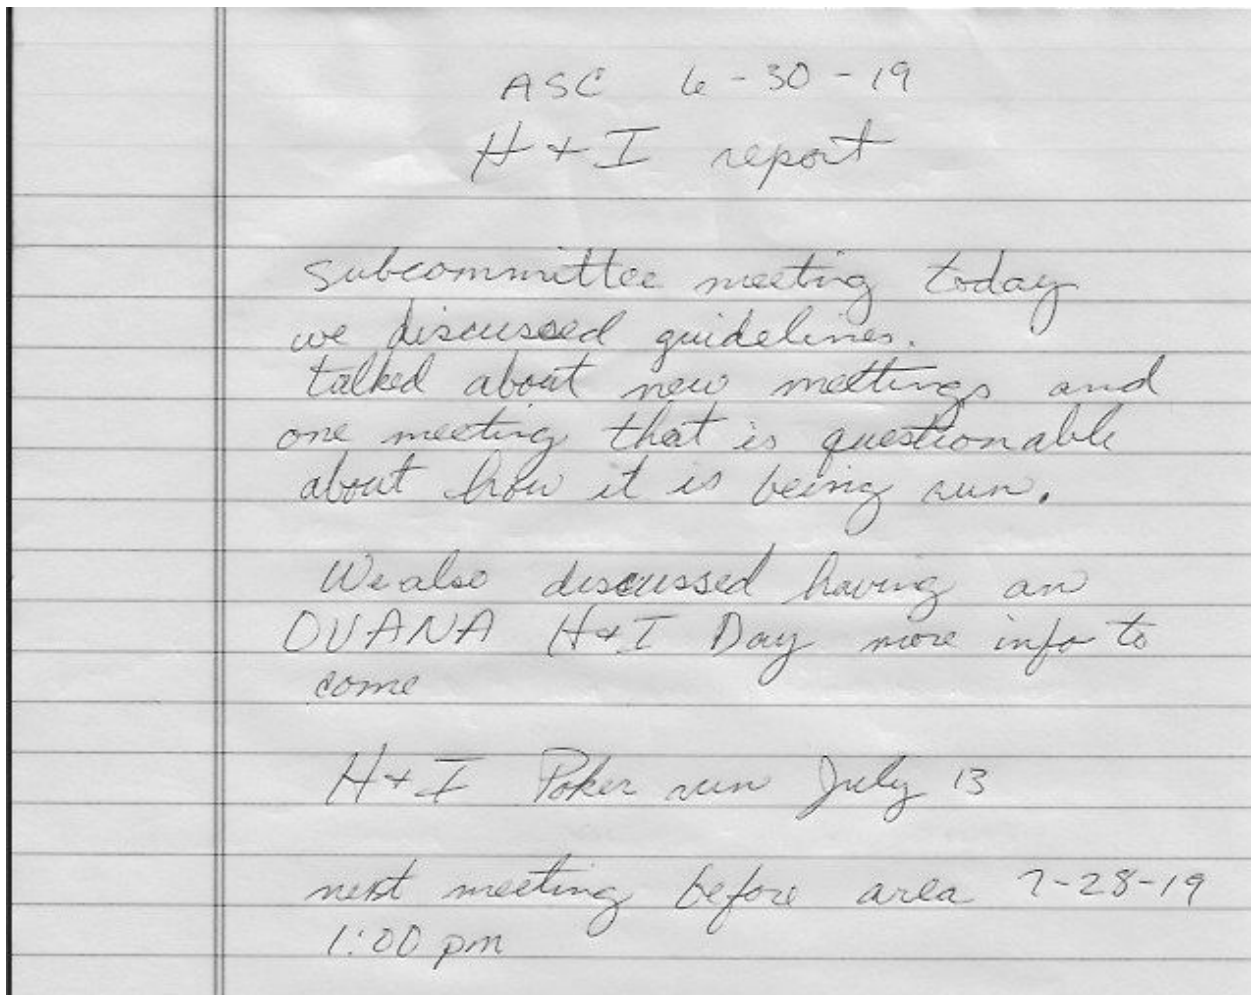 ASC 6-30-19
H + I report
subcommittee meeting today
we discussed guidelines.
talked about new meetings and
one meeting that is questionable
about how it is being run.
We also discussed having an
OVANA H+I Day more info to
come
H+I Poker run July 13
next meeting before area 7-28-19
1:00 pm